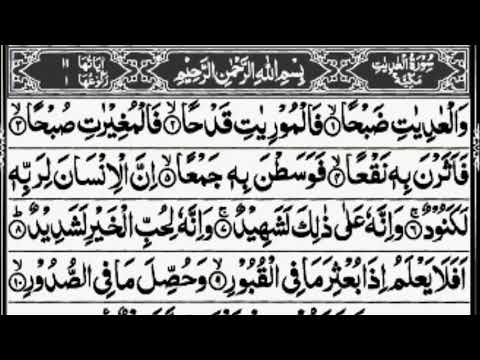 سُوْرَةُ الْعٰدِيٰتِ مَكِّيَّةٌ بِسْمِ اللهِ الرَّحْمٰنِ الرَّحِيْمِ اٰيَاتُهَا ١١ رُكُوْعُهَا ١
وَالْعٰدِيٰتِ ضَبْحًا ۙ﴿۱﴾ فَالْمُوْرِيٰتِ قَدْحًا ۙ﴿۲﴾ فَالْمُغِيْرٰتِ صُبْحًا ۙ﴿۳﴾
فَاَثَرْنَ بِهٖ نَقْعًا ۙ﴿۴﴾ فَوَسَطْنَ بِهٖ جَمْعًا ۙ﴿۵﴾ اِنَّ الْاِنْسَانَ لِرَبِّهٖ
لَكَنُوْدٌ ۚ﴿۶﴾ وَاِنَّهٗ عَلٰى ذٰلِكَ لَشَهِيْدٌ ۚ﴿۷﴾ وَاِنَّهٗ لِحُبِّ الْخَيْرِ لَشَدِيْدٌ ؕ﴿۸﴾
اَفَلَا يَعْلَمُ اِذَا بُعْثِرَ مَا فِى الْقُبُوْرِ ۙ﴿۹﴾ وَحُصِّلَ مَا فِى الصُّدُوْرِ ۙ﴿۱۰﴾